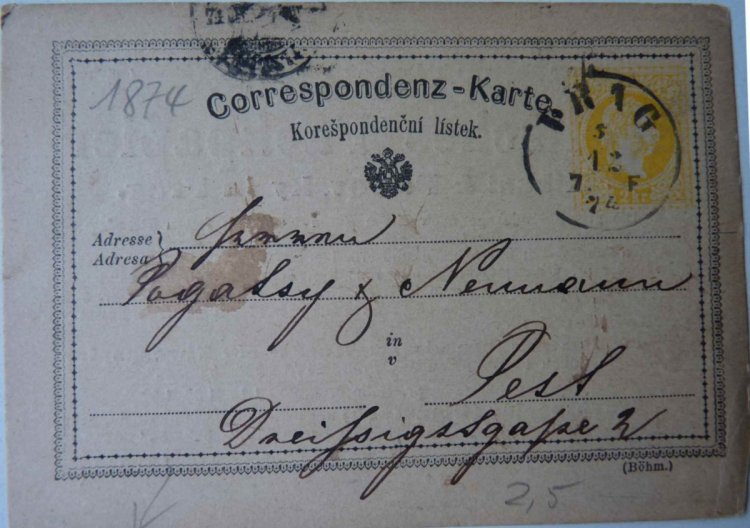 1874
Correspondenz-Karte.
PRAG
Korešpondenční lístek.
5
12
7. F
74
2 kr
Adresse
Adresa
Herren
Pogatsy & Neumann
in
v
Pest
Dreißigstgaße 2
(Böhm.)
2,5